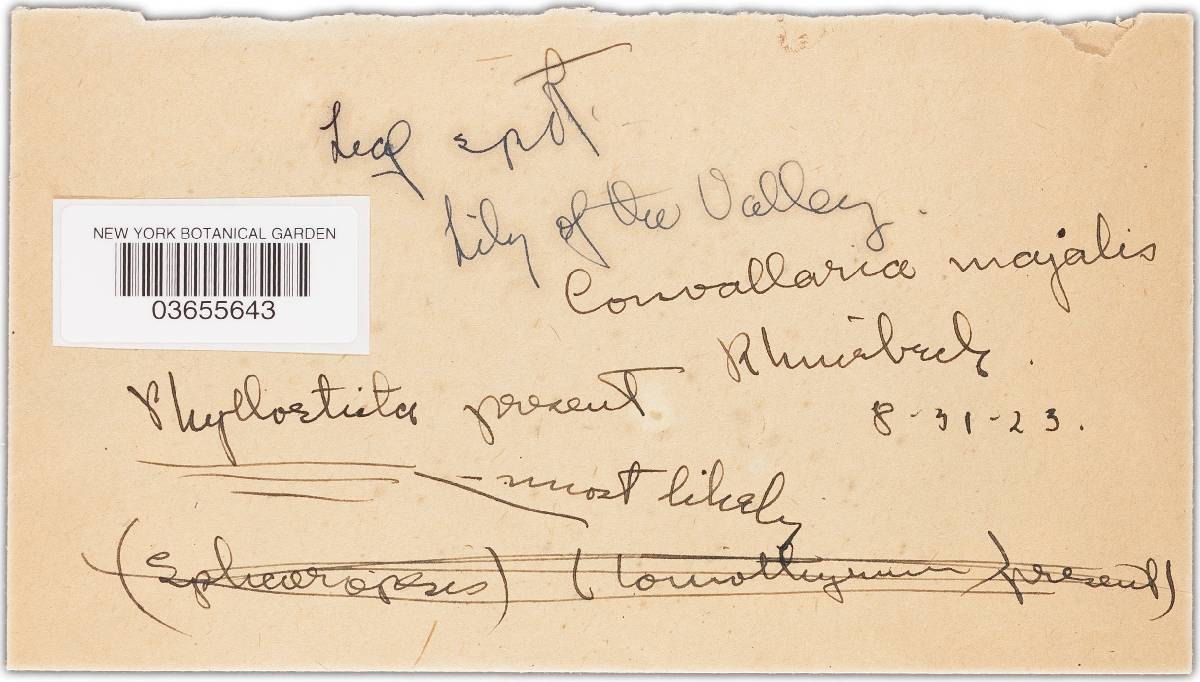 Leaf spot.
Lily of the Valley.
NEW YORK BOTANICAL GARDEN
03655643
Convallaria majalis
Rhinebeck.
Phyllosticta present
8-31-23.
- most likely
(Sphaeropsis) (Coniothyrium present)